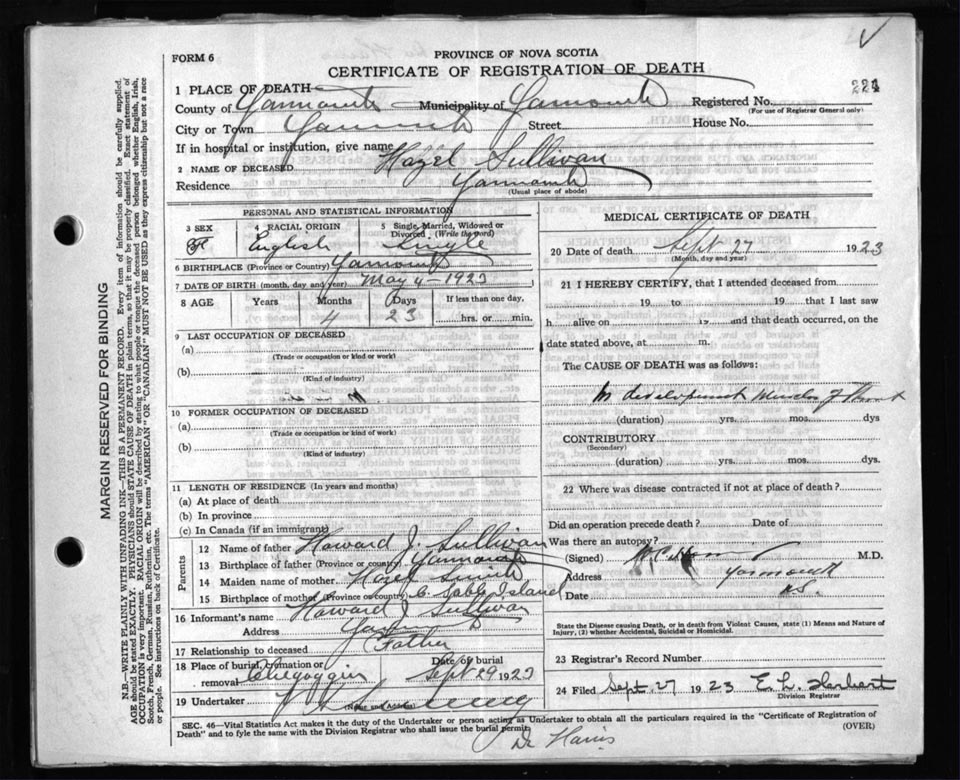 FORM 6
PROVINCE OF NOVA SCOTIA
CERTIFICATE OF REGISTRATION OF DEATH
1 PLACE OF DEATH
County of Yarmouth Municipality of Yarmouth Registered No. 221
(For use of Registrar General only)
City or Town Yarmouth Street House No.
If in hospital or institution, give name
2 NAME OF DECEASED Hazel Sullivan
Residence Yarmouth
(Usual place of abode)
PERSONAL AND STATISTICAL INFORMATION
3 SEX 4 RACIAL ORIGIN 5 Single, Married, Widowed or Divorced (Write the word)
F English Single
6 BIRTHPLACE (Province or Country) Yarmouth
7 DATE OF BIRTH (month, day, and year) May 4 - 1923
8 AGE Years Months Days If less than one day,
4 23 hrs. or min.
9 LAST OCCUPATION OF DECEASED
(a)
(Trade or occupation or kind or work)
(b)
(Kind of industry)
10 FORMER OCCUPATION OF DECEASED
(a)
(Trade or occupation or kind of work)
(b)
(Kind of industry)
11 LENGTH OF RESIDENCE (In years and months)
(a) At place of death
(b) In province
(c) In Canada (if an immigrant)
Parents
12 Name of father Howard J. Sullivan
13 Birthplace of father (Province or country) Yarmouth
14 Maiden name of mother Hazel Smith
15 Birthplace of mother (Province or country) C. Sable Island
16 Informant's name Howard J Sullivan
Address Yarmouth
17 Relationship to deceased Father
18 Place of burial, cremation or removal Chegoggin Date of burial Sept 29 1923
19 Undertaker
(Name and Address)
MEDICAL CERTIFICATE OF DEATH
20 Date of death Sept 27 1923
(Month, day and year)
21 I HEREBY CERTIFY, that I attended deceased from
19 to 19 that I last saw
h alive on 19 and that death occurred, on the
date stated above, at m.
The CAUSE OF DEATH was as follows:
(duration) yrs. mos. dys
CONTRIBUTORY
(Secondary)
(duration) yrs. mos. dys.
22 Where was disease contracted if not at place of death?
Did an operation precede death? Date of
Was there an autopsy?
(Signed) M.D.
Address Yarmouth
Date N.S.
State the Disease causing Death, or in death from Violent Causes, state (1) Means and Nature of Injury, (2) whether Accidental, Suicidal or Homicidal.
23 Registrar's Record Number
24 Filed Sept. 27 1923 E. L. Herbert
Division Registrar
SEC. 46—Vital Statistics Act makes it the duty of the Undertaker or person acting as Undertaker to obtain all the particulars required in the "Certificate of Registration of
Death" and to fyle the same with the Division Registrar who shall issue the burial permit. (OVER)
Dr Harris
MARGIN RESERVED FOR BINDING
N.B.—WRITE PLAINLY WITH UNFADING INK—THIS IS A PERMANENT RECORD. Every item of information should be carefully supplied.
AGE should be stated EXACTLY. PHYSICIANS should STATE CAUSE OF DEATH in plain terms, so that it may be properly classified. Exact statement of
OCCUPATION is very important. RACIAL ORIGIN will be described by stating to what people or tongue the deceased person belonged whether English, Irish,
Scotch, French, German, Russian, Ruthenian, etc. The terms "AMERICAN" OR "CANADIAN" MUST NOT BE USED as they express citizenship but not a race
or people. See instructions on back of Certificate.